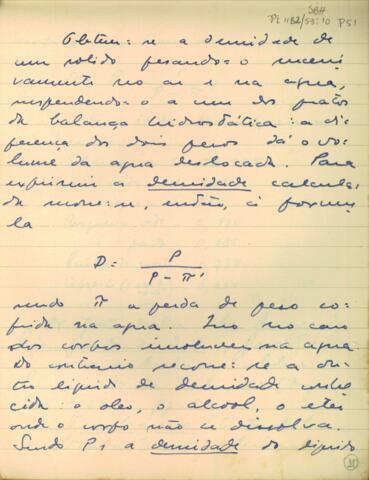 SBH
Pi 1182/53:10 P51
Obtem-se a densidade de
um solido pesando-o sucessi
vamente no ar e na agua,
suspendendo-o a um dos pratos
da balança hidrostática: a di
ferença dos dois pesos dá o vo-
lume da agua deslocada. Para
exprimir a densidade calcula-
da recorre-se, então, á formu
la
D = P / P - π'
sendo π a perda de peso so-
frida na agua. Isso no caso
dos corpos insoluveis na agua
do contrario recorre-se a ou
tro liquido de densidade conhe
cida: o oleo, o alcool, o eter
onde o corpo não se dissolva.
Sendo P1 a densidade do liquido